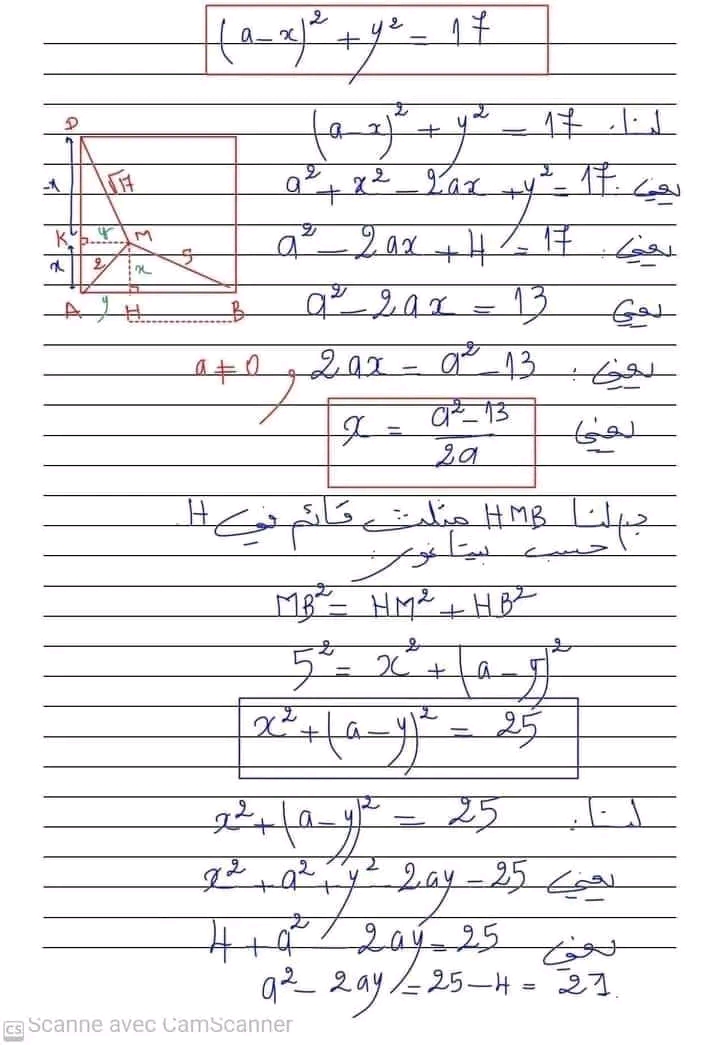 (a-x)² + y² = 17
لنا: (a-x)² + y² = 17
يعني: a² + x² - 2ax + y² = 17
يعني: a² - 2ax + 4 = 17
يعني a² - 2ax = 13
يعني: 2ax = a² - 13 , a ≠ 0
يعني x = (a² - 13)/2a
D
√17
-x
K
y
M
x
2
x
5
A
y
H
B
لنا HMB مثلث قائم في H.
حسب بيتاغور:
MB² = HM² + HB²
5² = x² + (a-y)²
x² + (a-y)² = 25
لنا: x² + (a-y)² = 25
يعني x² + a² + y² - 2ay = 25
يعني 4 + a² - 2ay = 25
a² - 2ay = 25 - 4 = 21.
CS Scanné avec CamScanner